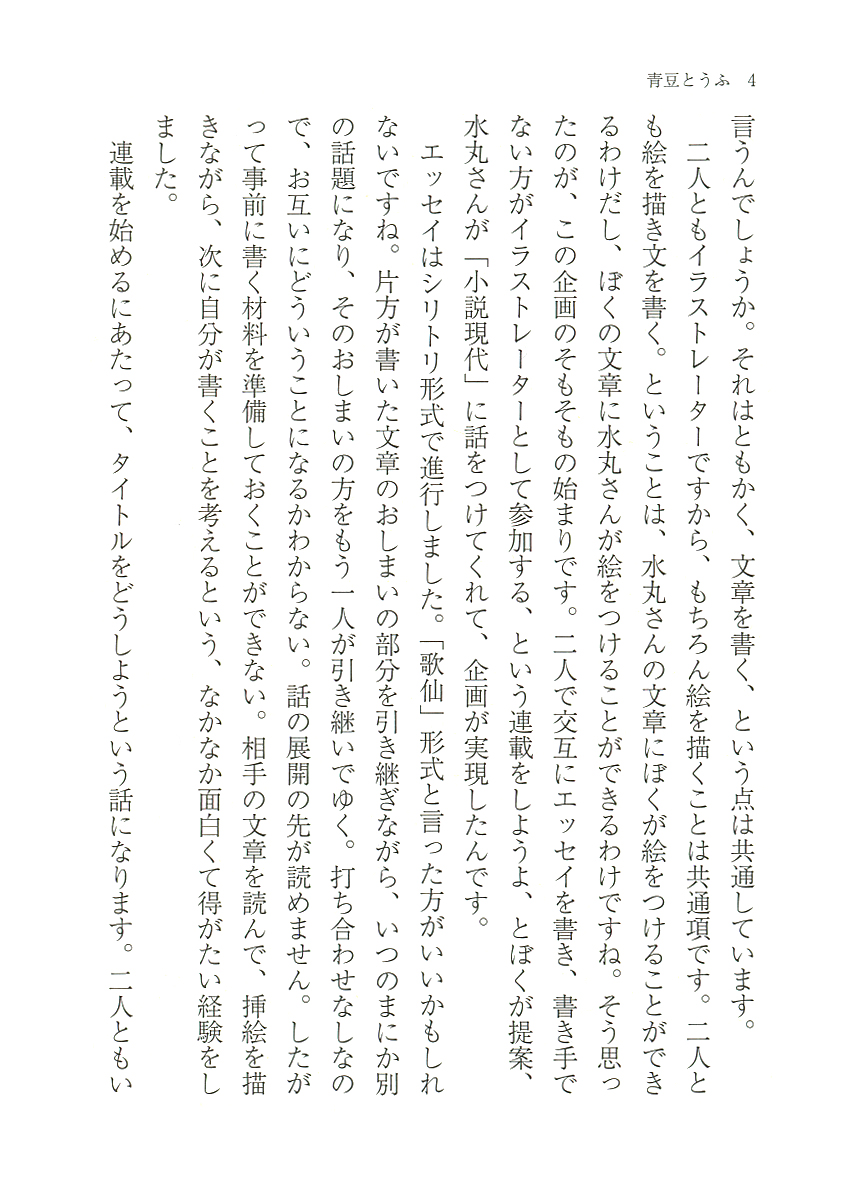 青豆とうふ 4
言うんでしょうか。それはともかく、文章を書く、という点は共通しています。
二人ともイラストレーターですから、もちろん絵を描くことは共通項です。二人と
も絵を描き文を書く。ということは、水丸さんの文章にぼくが絵をつけることができ
るわけだし、ぼくの文章に水丸さんが絵をつけることができるわけですね。そう思っ
たのが、この企画のそもそもの始まりです。二人で交互にエッセイを書き、書き手で
ない方がイラストレーターとして参加する、という連載をしようよ、とぼくが提案、
水丸さんが「小説現代」に話をつけてくれて、企画が実現したんです。
エッセイはシリトリ形式で進行しました。「歌仙」形式と言った方がいいかもしれ
ないですね。片方が書いた文章のおしまいの部分を引き継ぎながら、いつのまにか別
の話題になり、そのおしまいの方をもう一人が引き継いでゆく。打ち合わせなしなの
で、お互いにどういうことになるかわからない。話の展開の先が読めません。したが
って事前に書く材料を準備しておくことができない。相手の文章を読んで、挿絵を描
きながら、次に自分が書くことを考えるという、なかなか面白くて得がたい経験をし
ました。
連載を始めるにあたって、タイトルをどうしようという話になります。二人ともい